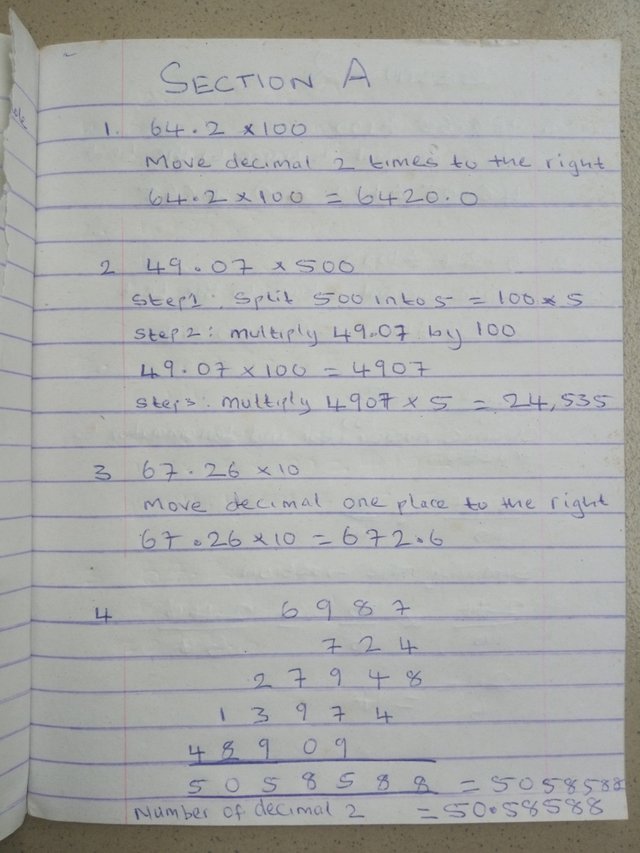 SECTION A
1. 64.2 x100
Move decimal 2 times to the right
64.2 x 100 = 6420.0
2 49.07 x 500
Step1: Split 500 into 5 = 100 x 5
Step 2: multiply 49.07 by 100
49.07 x 100 = 4907
Step 3: multiply 4907 x 5 = 24,535
3 67.26 x 10
Move decimal one place to the right
67.26 x 10 = 672.6
4 6 9 8 7
7 2 4
2 7 9 4 8
1 3 9 7 4
4 8 9 0 9
5 0 5 8 5 8 8 = 5058588
Number of decimal 2 = 50.58588